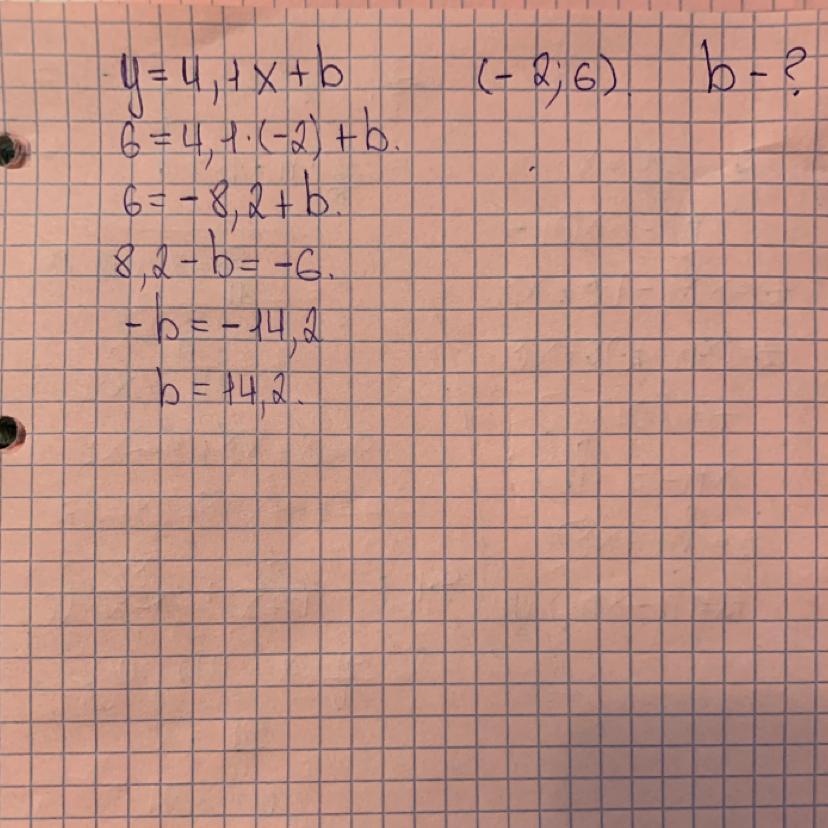 y = 4,1x + b (- 2; 6) b - ?
6 = 4,1 · (-2) + b.
6 = - 8,2 + b.
8,2 - b = -6.
- b = - 14,2
b = 14,2.